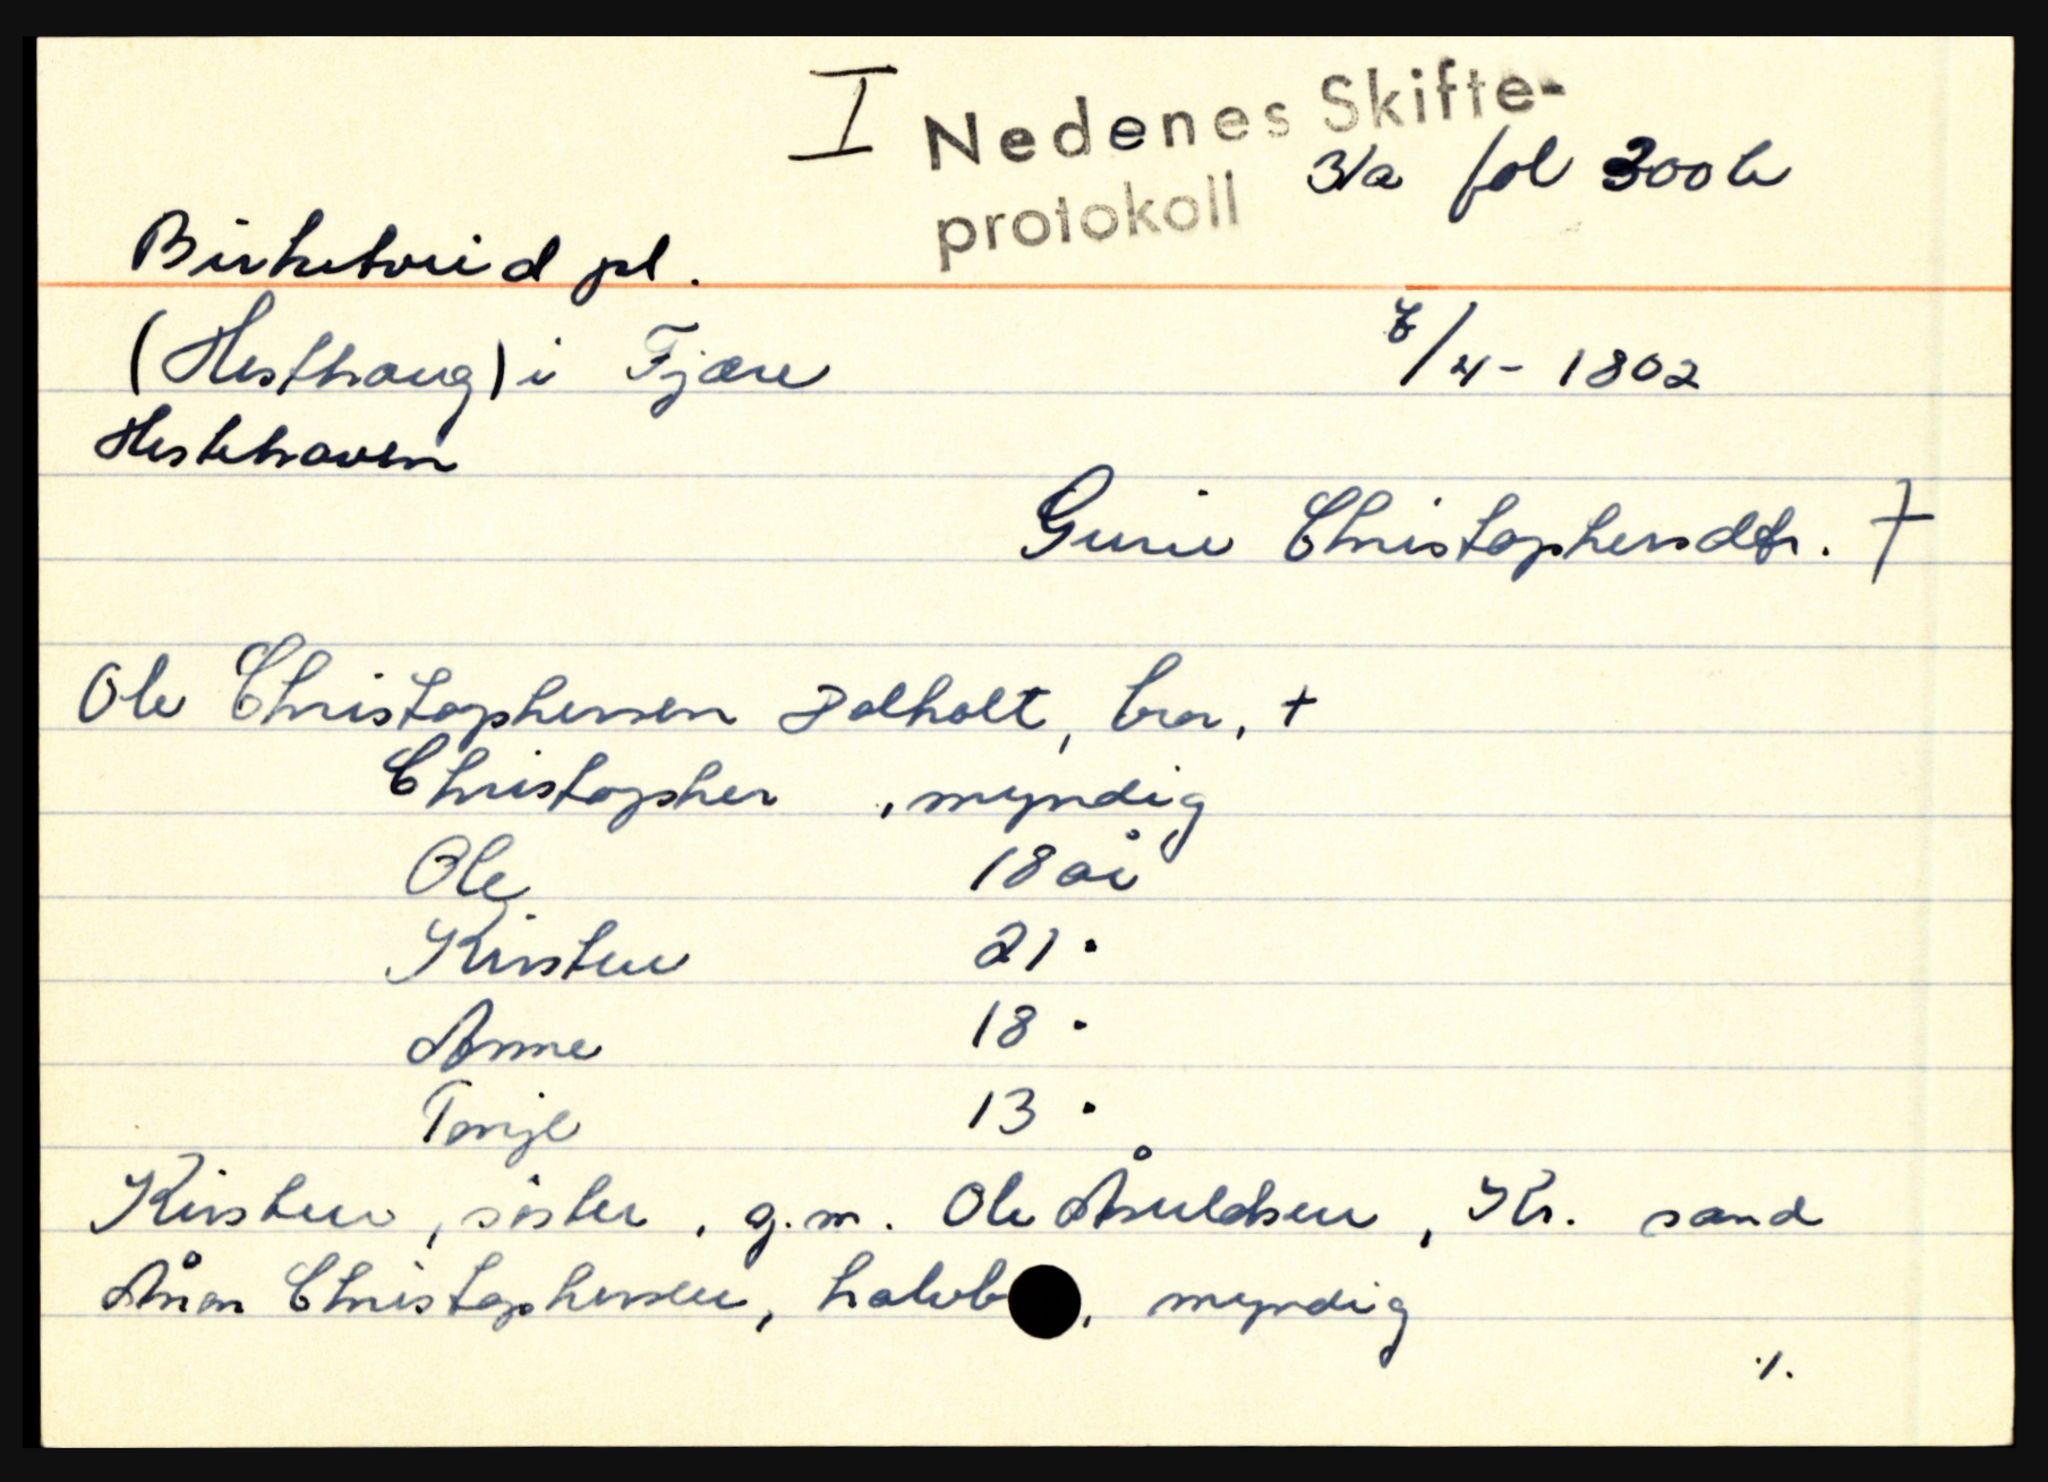 I Nedenes Skifte-
protokoll 3/a fol 300 b
Birketveid pl.
(Hesthaug) i Fjære 7/4 - 1802
Hestehaven
Gurie Christophersdtr. †
Ole Christophersen Dalholt, bror, +
Christopher, myndig
Ole 18 år
Kirsten 21 "
Anne 18 "
Torije 13 "
Kirsten, søster, g.m. Ole Åsuldsen, Kr. sand
Christophersen, halvb , myndig
./.